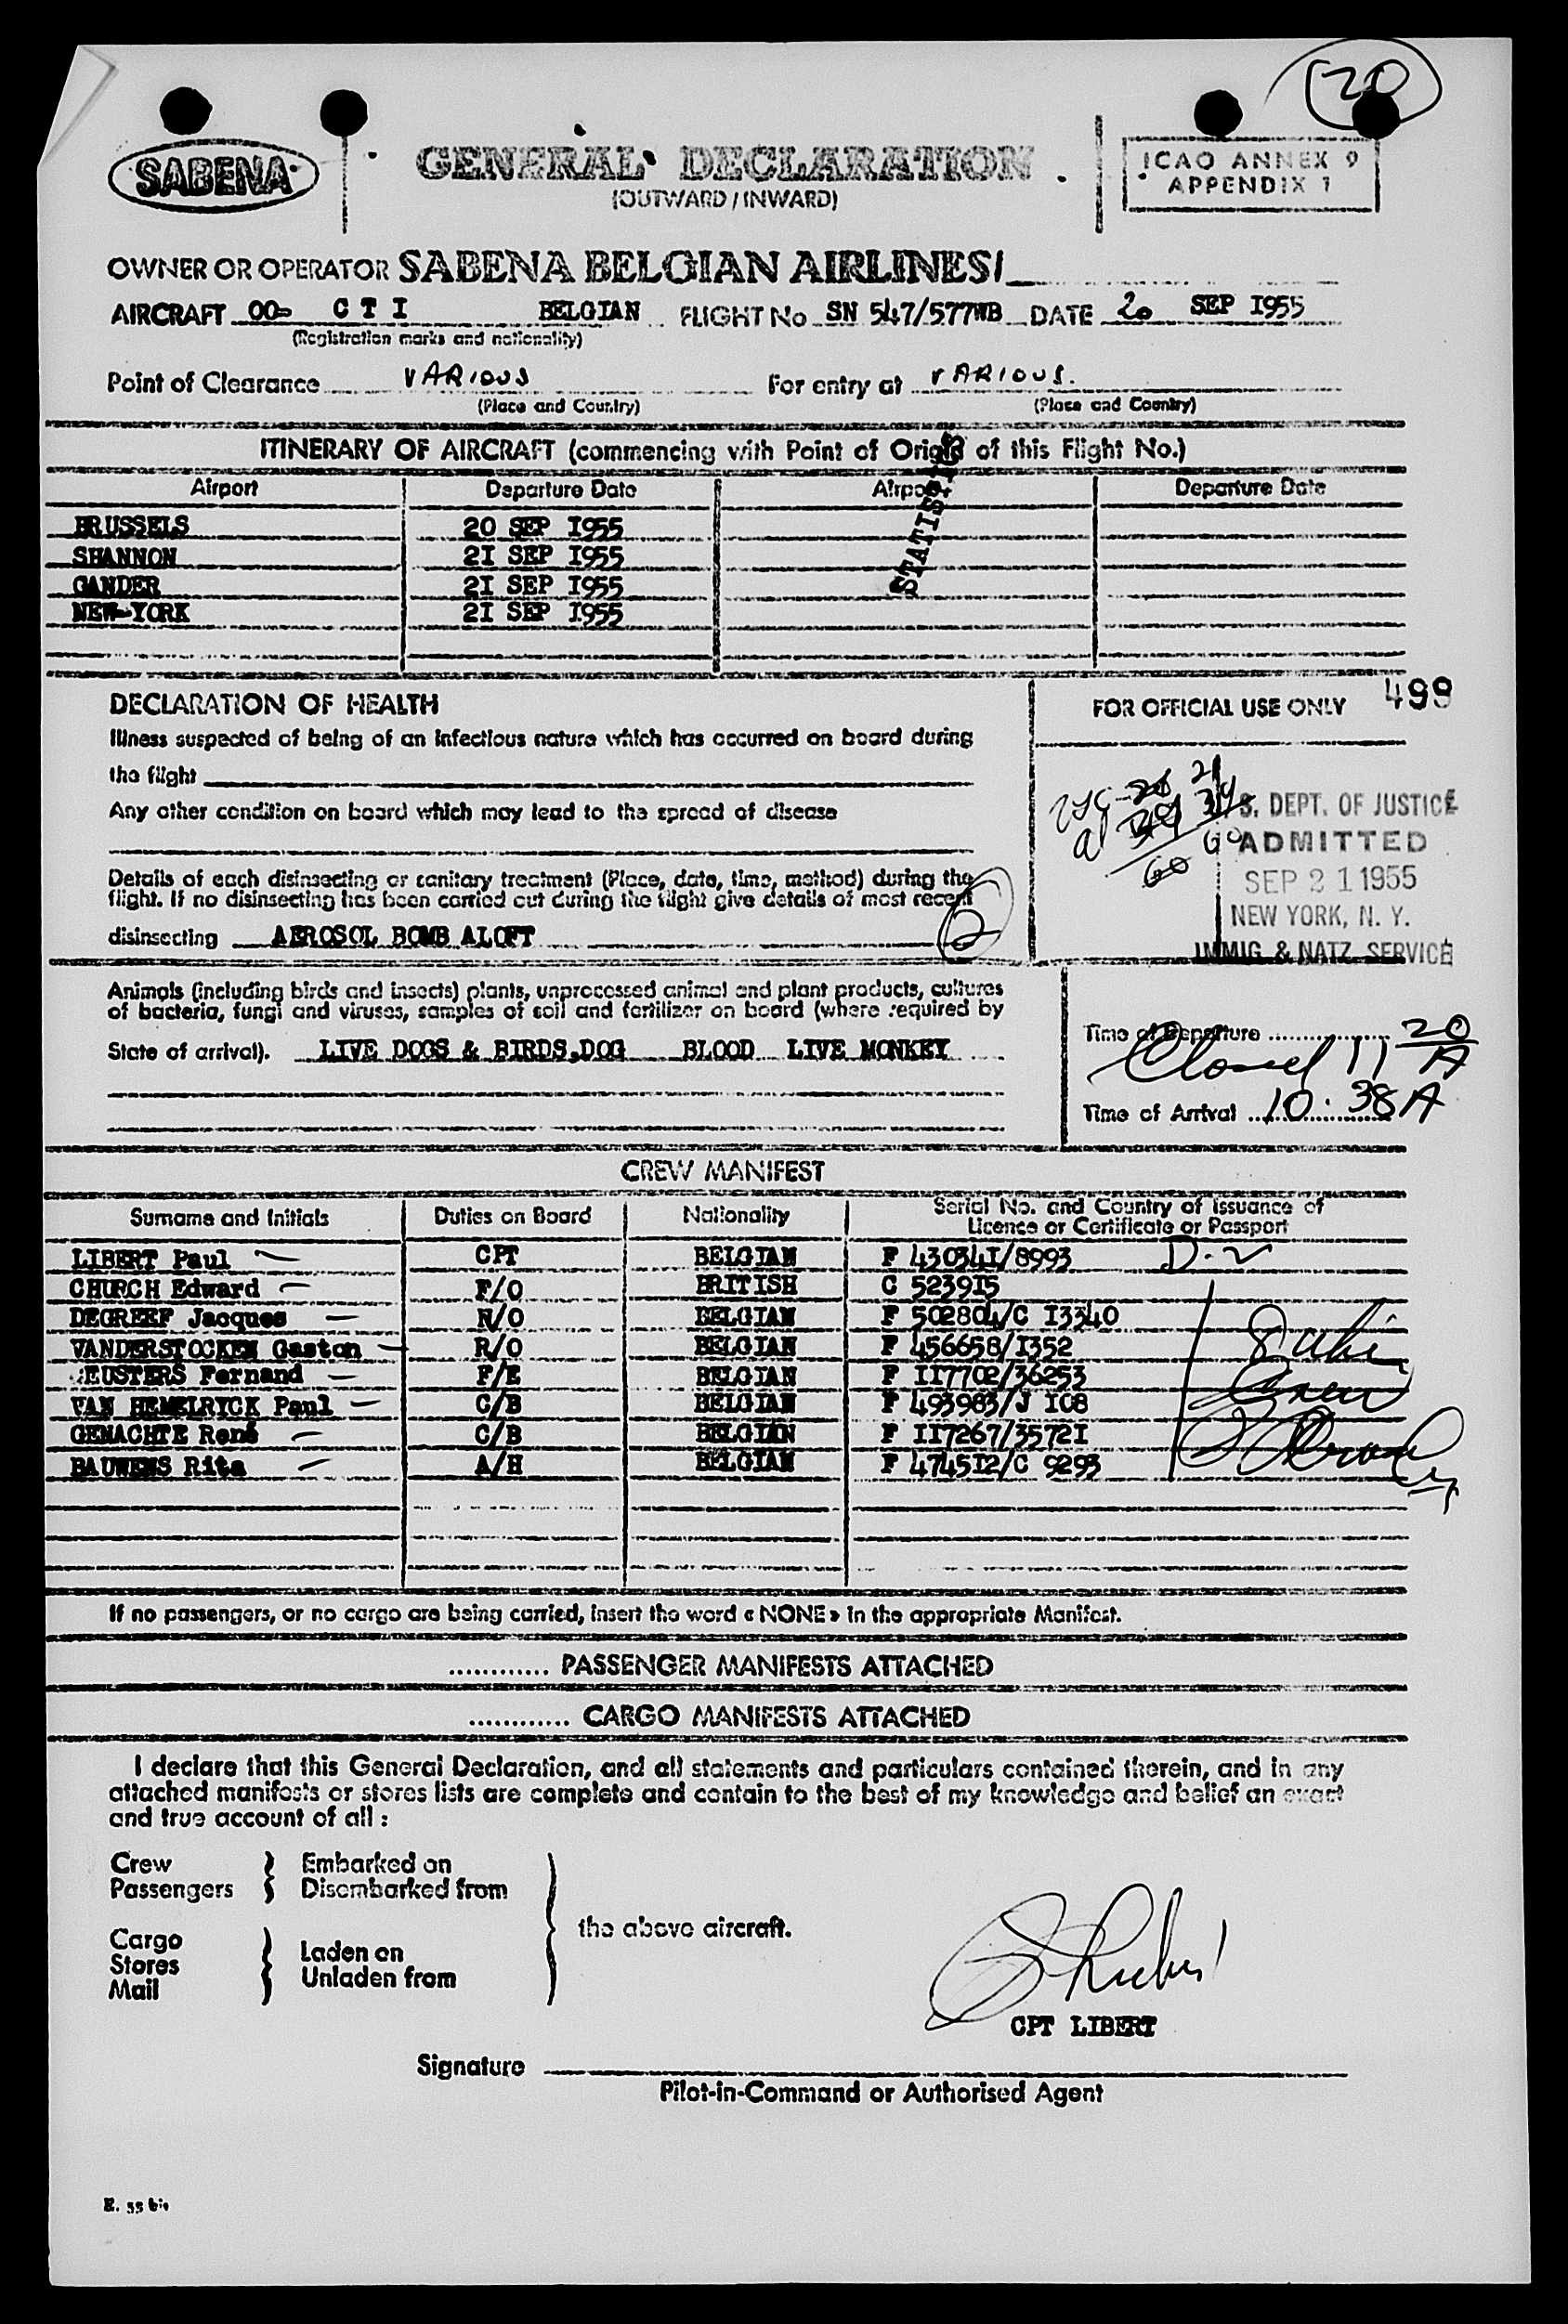 20
SABENA
GENERAL DECLARATION
(OUTWARD / INWARD)
ICAO ANNEX 9
APPENDIX 1
OWNER OR OPERATOR SABENA BELGIAN AIRLINES/
AIRCRAFT OO- C T I BELGIAN FLIGHT No SN 547/577WB DATE 20 SEP I955
(Registration marks and nationality)
Point of Clearance VARIOUS For entry at VARIOUS.
(Place and Country) (Place and Country)
ITINERARY OF AIRCRAFT (commencing with Point of Origin of this Flight No.)
Airport Departure Date Airport Departure Date
STATISTICS
BRUSSELS 20 SEP I955
SHANNON 2I SEP I955
GANDER 2I SEP I955
NEW-YORK 2I SEP I955
DECLARATION OF HEALTH
Illness suspected of being of an infectious nature which has occurred on board during
the flight
Any other condition on board which may lead to the spread of disease
Details of each disinsecting or sanitary treatment (Place, date, time, method) during the
flight. If no disinsecting has been carried out during the flight give details of most recent
disinsecting AEROSOL BOMB ALOFT
FOR OFFICIAL USE ONLY 498
21
60
60
S. DEPT. OF JUSTICE
ADMITTED
SEP 21 1955
NEW YORK, N. Y.
IMMIG & NATZ SERVICE
Animals (including birds and insects) plants, unprocessed animal and plant products, cultures
of bacteria, fungi and viruses, samples of soil and fertilizer on board (where required by
State of arrival). LIVE DOGS & BIRDS,DOG BLOOD LIVE MONKEY
Time of Departure
Closed 11 20 A
Time of Arrival 10:38 A
CREW MANIFEST
Surname and Initials Duties on Board Nationality Serial No. and Country of Issuance of
Licence or Certificate or Passport
LIBERT Paul CPT BELGIAN F 43034I/8993 D-2
CHURCH Edward F/O BRITISH C 5239I5
DEGREEF Jacques N/O BELGIAN F 502804/C I3340
VANDERSTOCKEN Gaston R/O BELGIAN F 456658/I352
EUSTERS Fernand F/E BELGIAN F II7702/36253
VAN HEMELRYCK Paul C/B BELGIAN F 493983/J IC8
GEMACHTE René C/B BELGIAN F II7267/3572I
BAUWENS Rita A/H BELGIAN F 4745I2/C 9293
If no passengers, or no cargo are being carried, insert the word « NONE » in the appropriate Manifest.
............ PASSENGER MANIFESTS ATTACHED
............ CARGO MANIFESTS ATTACHED
I declare that this General Declaration, and all statements and particulars contained therein, and in any
attached manifests or stores lists are complete and contain to the best of my knowledge and belief an exact
and true account of all :
Crew Embarked on
Passengers Disembarked from
the above aircraft.
Cargo Laden on
Stores Unladen from
Mail
CPT LIBERT
Signature
Pilot-in-Command or Authorised Agent
E. 55 bis